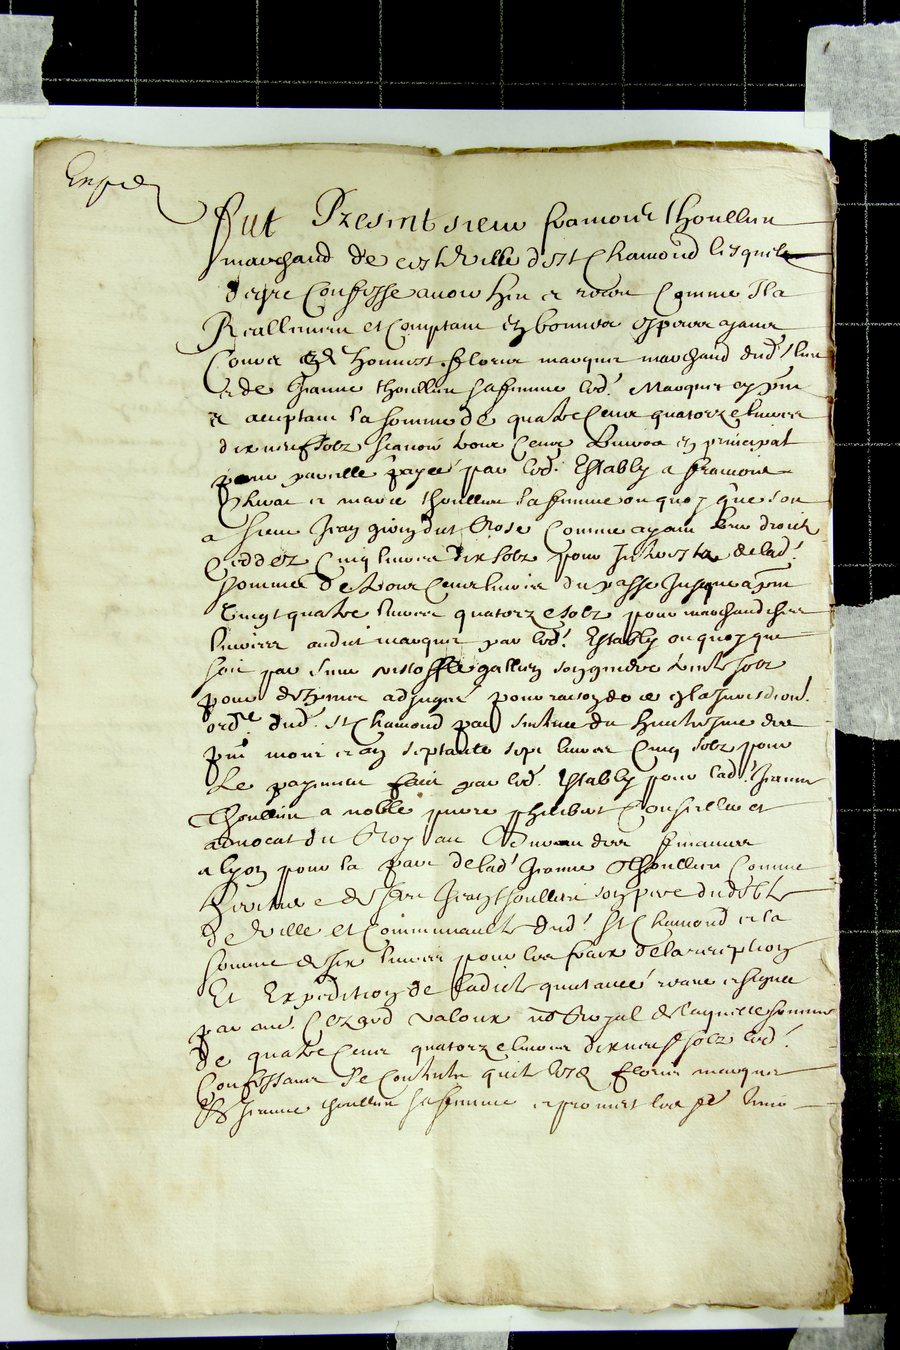 Exped
Fut Present sieur francois thoullieu
marchand de ceste ville de st Chamond lesquel
degre Confesse avoir heu et receu Comme Il a
Reallement et Comptant en bonnes especes ayant
Cours de honneste fleurie marquier marchand dud. lieu
et de Jeanne thoullieu sa femme led. Marquier present
et aceptant la somme de quatre Cent quatorze livres
dix neuf solz scavoir trois Cent livres en principal
pour pareille payee par led. Estably a francois
et marie thoullieu sa femme ou quoy que soit
a sieur Jean Rose Comme ayant leur droict
Ceddez Cinq livres dix solz pour Interestz de lad.
somme de trois Cent livres du passe Jusque a present
vingt quatre livres quatorze solz pour marchandises
livrees audict marquier par led. Estably ou quoy que
soit par sieur gallien son gendre trente solz
pour despens adjugés pour raison de ce en la Jurisdiction
ord.re dud. st Chamond par sentence du huictiesme des
pnt mois et an septante sept livres Cinq solz pour
Le payement faict par led. Estably pour lad. Jeanne
Thoullieu a noble pierre philibert Conseiller et
advocat du Roy au Bureau des finances
a lyon pour la part de lad. Jeanne Thoullieu Comme
heritiere de feu Jean thoullieu son pere du debte
de ville et Communaulté dud. St Chamond et la
somme de six livres pour les fraix de la reception
Et Expedition de ladicte quittance receue et signee
par me. Cezard valoux no.re Royal de laquelle somme
de quatre Cent quatorze livres dix neuf solz led.
Confessant se Contente quite lesd. fleurie marquier
et Jeanne thoullieu sa femme et promet les en tenir